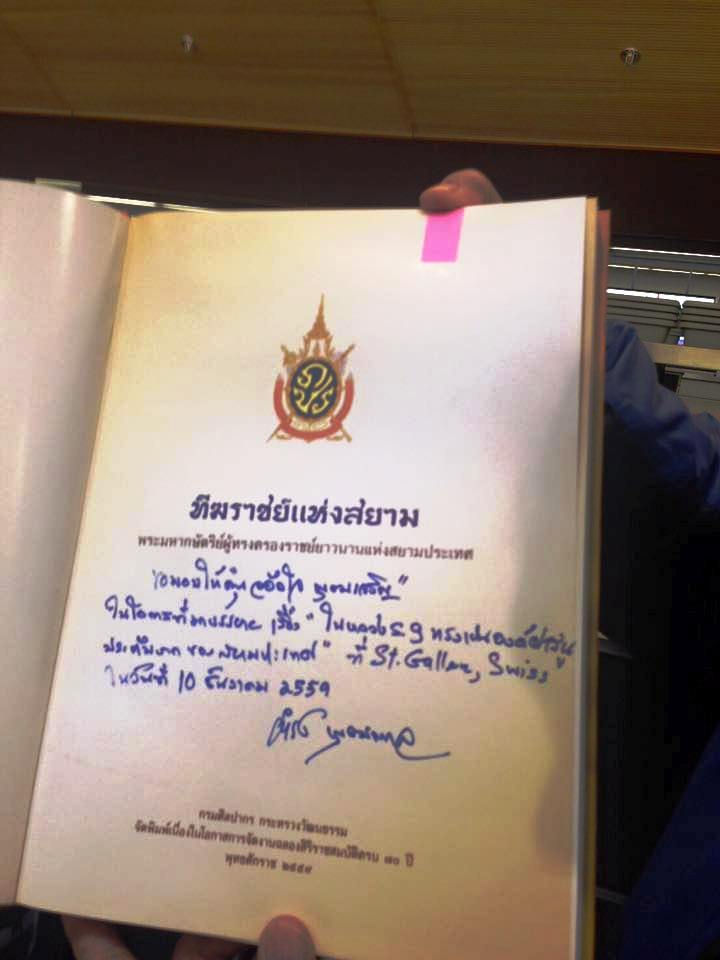 ทีฆราชย์แห่งสยาม
พระมหากษัตริย์ผู้ทรงครองราชย์ยาวนานแห่งสยามประเทศ
ขอมอบให้คุณ
ในโอกาสที่มาบรรยาย เรื่อง "ในหลวง ร.9 ทรงเป็นองค์
ของ สยามประเทศ" ที่ St. Gallen, Swiss
ในวันที่ 10 ธันวาคม 2559
กรมศิลปากร กระทรวงวัฒนธรรม
จัดพิมพ์เนื่องในโอกาสการจัดงานฉลองสิริราชสมบัติครบ ๗๐ ปี
พุทธศักราช ๒๕๕๙